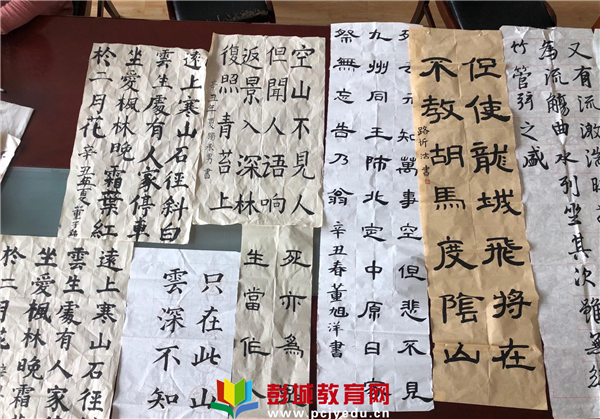 遠上寒山石徑斜白
雲生處有人家停車
坐愛楓林晚霜葉紅
於二月花 辛丑年夏 董子
空山不見人
但聞人语响
返景入深林
復照青苔上
辛丑年夏 書
元知萬事空但悲不見
九州同王師北定中原日
祭無忘告乃翁 辛丑春董旭洋書
但使龍城飛將在
不教胡馬度陰山
路沂法書
又有流激湍
為流觴曲水列坐其次雖無
竹管弦之盛
遠上寒山石徑
雲生處有人家
坐愛楓林晚霜
於二月花
只在此山
雲深不知
生當作
死亦為
彭城教育网
www.pcjyedu.cn